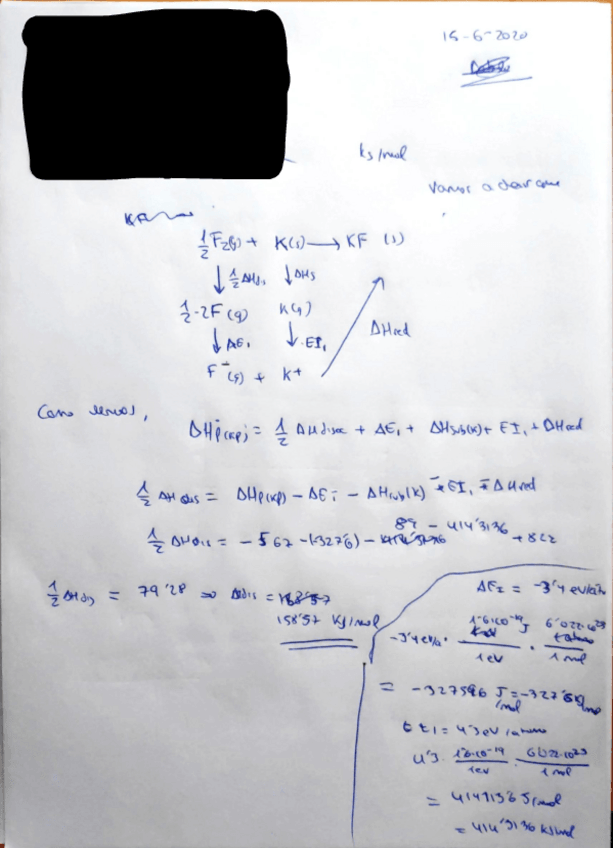 15-6-2020
kJ/mol
Vamos a
KF
1/2 F2(g) + K(s) → KF (s)
↓ 1/2 ΔHdis ↓ ΔHs
1/2 · 2F (g) K(g)
↓ AE1 ↓ EI1 ΔHred
F-(g) + K+
Como vemos,
ΔHf(KF) = 1/2 ΔHdisoc + ΔE1 + ΔHsub(K) + EI1 + ΔHred
1/2 ΔHdis = ΔHf(KF) - ΔE1 - ΔHsub(K) - EI1 - ΔHred
1/2 ΔHdis = -567 - (-327'6) - 89 - 414'3136 + 822
1/2 ΔHdis = 79'28 ⇒ ΔHdis =
158'57 KJ/mol
ΔE1 = -3'4 eV/atomo
-3'4 eV/a · 1'6·10^-19 J / 1 eV · 6'022·10^23 / 1 mol
= -327596 J/mol = -327'6 kJ/mol
EI1 = 4'3 eV/atomo
4'3 · 1'6·10^-19 / 1 eV · 6'022·10^23 / 1 mol
= 414313'6 J/mol
= 414'3136 kJ/mol